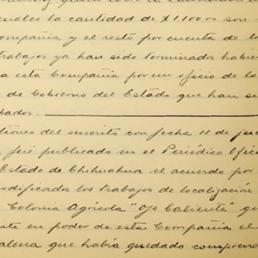 cuales la cantidad de $1.100.00 son
Compañía y el resto por cuenta de lo
trabajos ya han sido terminados habién
a esta Compañía por un oficio de la
de Gobierno del Estado que han si
bados.
tiones del suscrito con fecha 11 de ju
fué publicado en el Periódico Ofic
Estado de Chihuahua el acuerdo por
odificados los trabajos de localización
Colonia Agrícola "Ojo Caliente" qu
nte en poder de esta Compañía el
alena que había quedado comprend